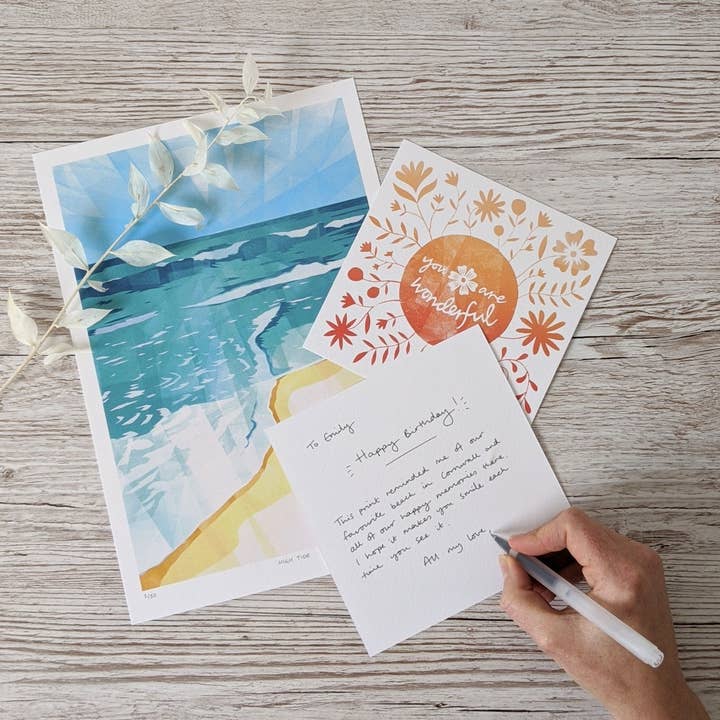 you are
wonderful
To Emily
Happy Birthday!
This print reminded me of our
favourite beach in Cornwall and
all of our happy memories there.
I hope it makes you smile each
time you see it.
All my love
HIGH TIDE